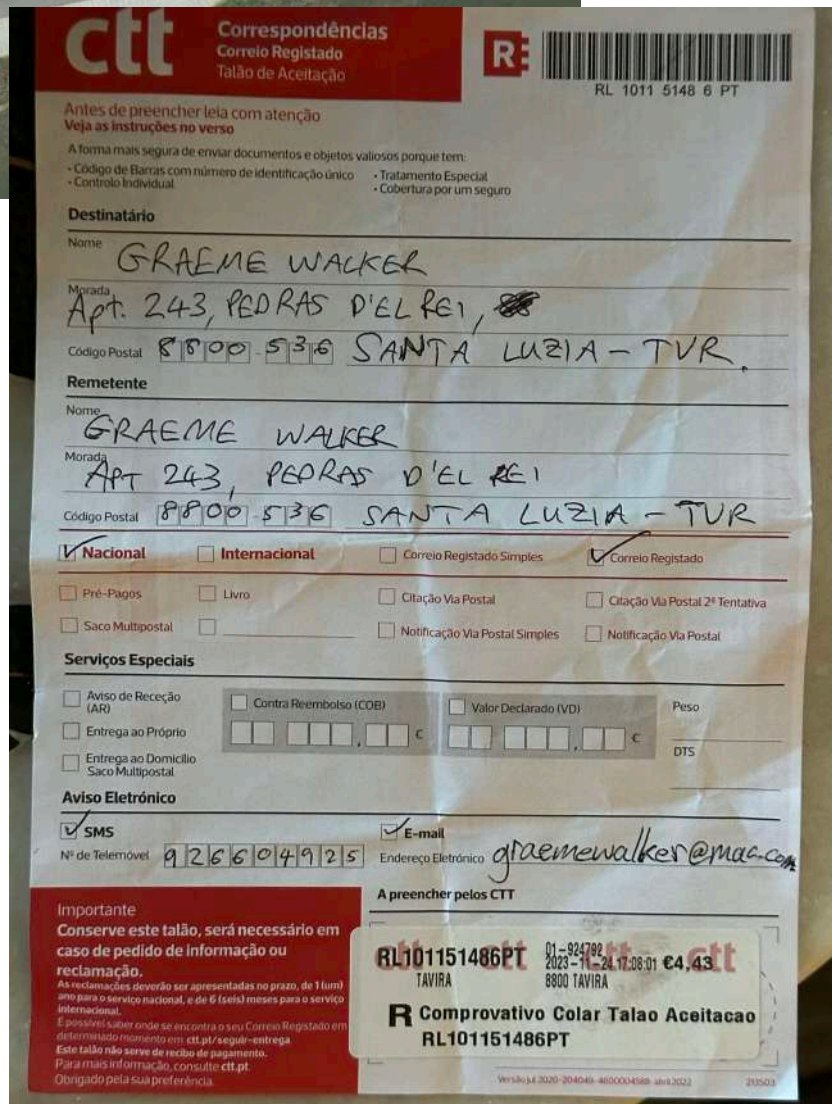 ctt
Correspondências
Correio Registado
Talão de Aceitação
R
RL 1011 5148 6 PT
Antes de preencher leia com atenção
Veja as instruções no verso
A forma mais segura de enviar documentos e objetos valiosos porque tem:
• Código de Barras com número de identificação único • Tratamento Especial
• Controlo Individual • Cobertura por um seguro
Destinatário
Nome GRAEME WALKER
Morada Apt. 243, PEDRAS D'EL REI,
Código Postal 8800-536 SANTA LUZIA - TVR.
Remetente
Nome GRAEME WALKER
Morada APT 243, PEDRAS D'EL REI
Código Postal 8800-536 SANTA LUZIA - TVR
Nacional Internacional Correio Registado Simples Correio Registado
Pré-Pagos Livro Citação Via Postal Citação Via Postal 2ª Tentativa
Saco Multipostal Notificação Via Postal Simples Notificação Via Postal
Serviços Especiais
Aviso de Receção (AR) Contra Reembolso (COB) Valor Declarado (VD) Peso
Entrega ao Próprio , € , € DTS
Entrega ao Domicílio
Saco Multipostal
Aviso Eletrónico
SMS E-mail
Nº de Telemóvel 926604925 Endereço Eletrónico graemewalker@mac.com
A preencher pelos CTT
Importante
Conserve este talão, será necessário em
caso de pedido de informação ou
reclamação.
As reclamações deverão ser apresentadas no prazo, de 1 (um)
ano para o serviço nacional, e de 6 (seis) meses para o serviço
internacional.
É possível saber onde se encontra o seu Correio Registado em
determinado momento em ctt.pt/seguir-entrega
Este talão não serve de recibo de pagamento.
Para mais informação, consulte ctt.pt.
Obrigado pela sua preferência.
RL101151486PT 01-924792
TAVIRA 2023-11-24 17:08:01 €4,43
8800 TAVIRA
R Comprovativo Colar Talao Aceitacao
RL101151486PT